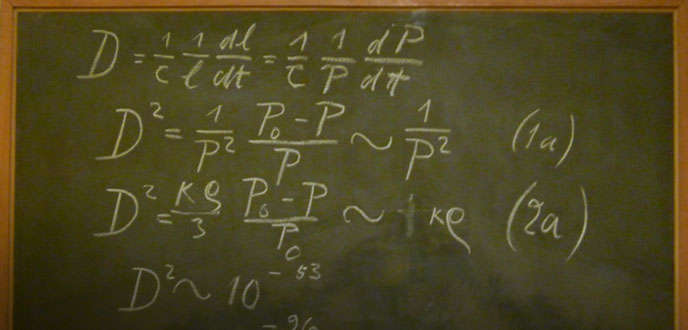 D = 1/c 1/l dl/dt = 1/c 1/P dP/dt
D² = 1/P² P₀-P/P ~ 1/P² (1a)
D² = κρ/3 P₀-P/P₀ ~ κρ (2a)
D² ~ 10⁻⁵³